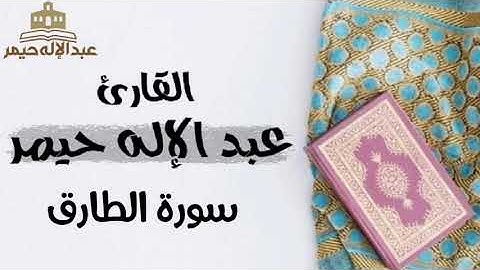 عبد الإله حيمر
القارئ
عبد الإله حيمر
سورة الطارق